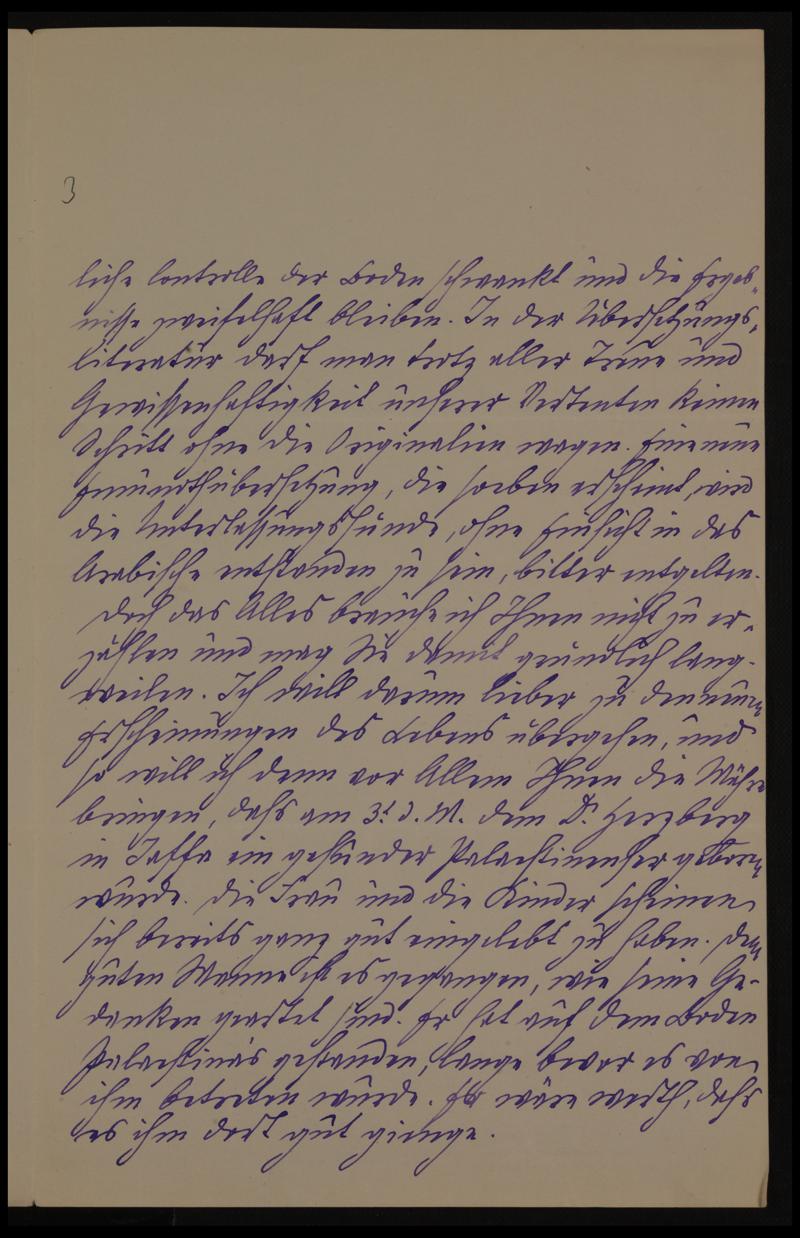 3
liche Controlle der Boden schwankt und die Ergeb-
nisse zweifelhaft bleiben. In der Übersetzungs-
literatur darf man trotz aller Treue und
Gewissenhaftigkeit unserer Vertenten keinen
Schritt ohne die Originalien wagen. Eine neue
Emunothübersetzung, die soeben erscheint, wird
die Unterlassungssünde, ohne Einsicht in das
Arabische entstanden zu sein, bitter entgelten.
Doch das Alles brauche ich Ihnen nicht zu er-
zählen und mag Sie damit gründlich lang-
weilen. Ich will darum lieber zu den neuen
Erscheinungen des Lebens übergehen, und
so will ich denn vor Allem Ihnen die Mähre
bringen, dass am 3t. d. M. dem Dr. Herzberg
in Jaffa ein gesunder Palaestinenser geboren
wurde. Die Frau und die Kinder scheinen
sich bereits ganz gut eingelebt zu haben. Dem
guten Manne ist es gegangen, wie seine Ge-
danken geartet sind. Er hat auf dem Boden
Palaestina's gestanden, lange bevor es von
ihm betreten wurde. Er wäre werth, dass
es ihm dort gut gienge.